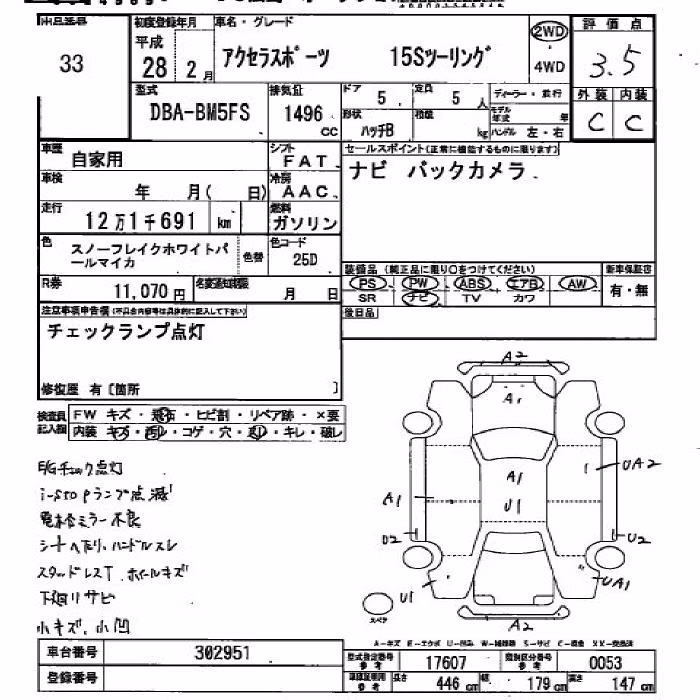 出品番号 初度登録年月 車名・グレード 2WD 評価点
33 平成 28 2月 アクセラスポーツ 15Sツーリング 4WD 3.5
型式 排気量 ドア 定員 ディーラー・並行 外装 内装
DBA-BM5FS 1496 cc 5 5人 モデル年式 年 C C
形状 積載
ハッチB kg ハンドル 左・右
車歴 自家用 シフト FAT セールスポイント(正常に機能するものに限ります)
車検 年 月( 日) 冷房 AAC ナビ バックカメラ
走行 12万1千691 km 燃料 ガソリン
色 スノーフレイクホワイトパールマイカ 色替 色コード 25D
装備品(純正品に限り○をつけてください) 新車保証書
R券 11,070円 名変通知期限 月 日 PS PW ABS エアB AW 有・無
SR ナビ TV カワ
注意事項申告欄(不具合内容等は具体的に記入して下さい) 後日品
チェックランプ点灯
修復歴 有〔箇所 〕
検査員記入欄 FW キズ・飛石・ヒビ割・リペア跡・×要
内装 キズ・汚レ・コゲ・穴・凹レ・キレ・破レ
E/Gチェック点灯
i-stopランプ点滅
電格ミラー不良
シートヘタリ、ハンドルスレ
スタッドレスT ホイールキズ
下廻りサビ
小キズ、小凹
A2
A1
A1
U1
A1
UA2
U2
U2
U1
UA1
A2
スペア
A-キズ E-エクボ U-凹み W-補修跡 S-サビ C-腐食 XX-交換済
車台番号 302951 型式指定番号 参考 17607 類別区分番号 参考 0053
登録番号 長さ 446 cm 幅 179 cm 高さ 147 cm